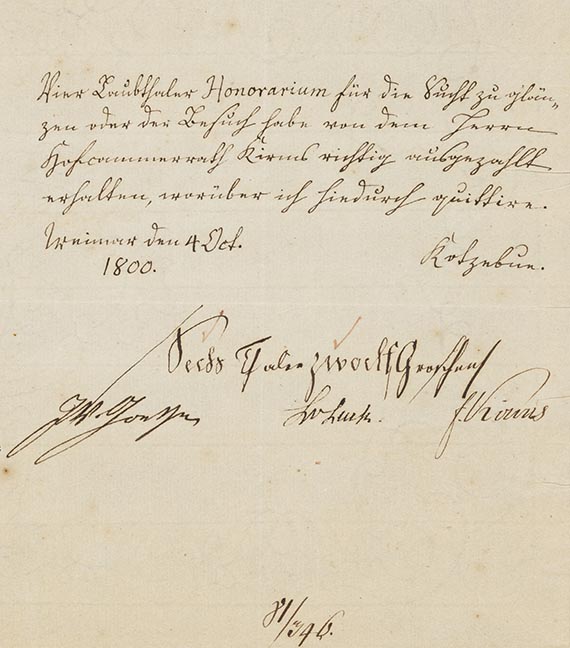 Vier Laubthaler Honorarium für die Sucht zu glän-
zen oder der Besuch habe von dem Herrn
Hofcammerrath Kirms richtig ausgezahlt
erhalten, worüber ich hiedurch quittire.
Weimar den 4 Oct.
1800.
Kotzebue.
Sechs Thaler zwölf Groschen
JWGoethe
FKirms